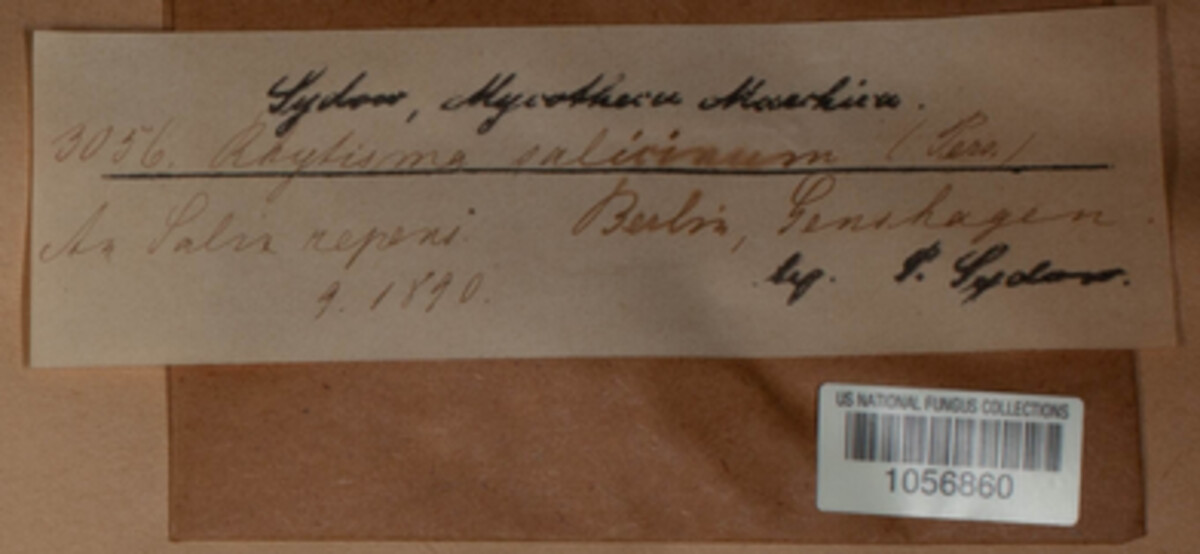 Sydow, Mycotheca Marchica.
3056. Rhytisma salicinum (Pers.)
An Salix repens. Berlin, Genshagen.
9. 1890. leg. P. Sydow.
US NATIONAL FUNGUS COLLECTIONS
1056860